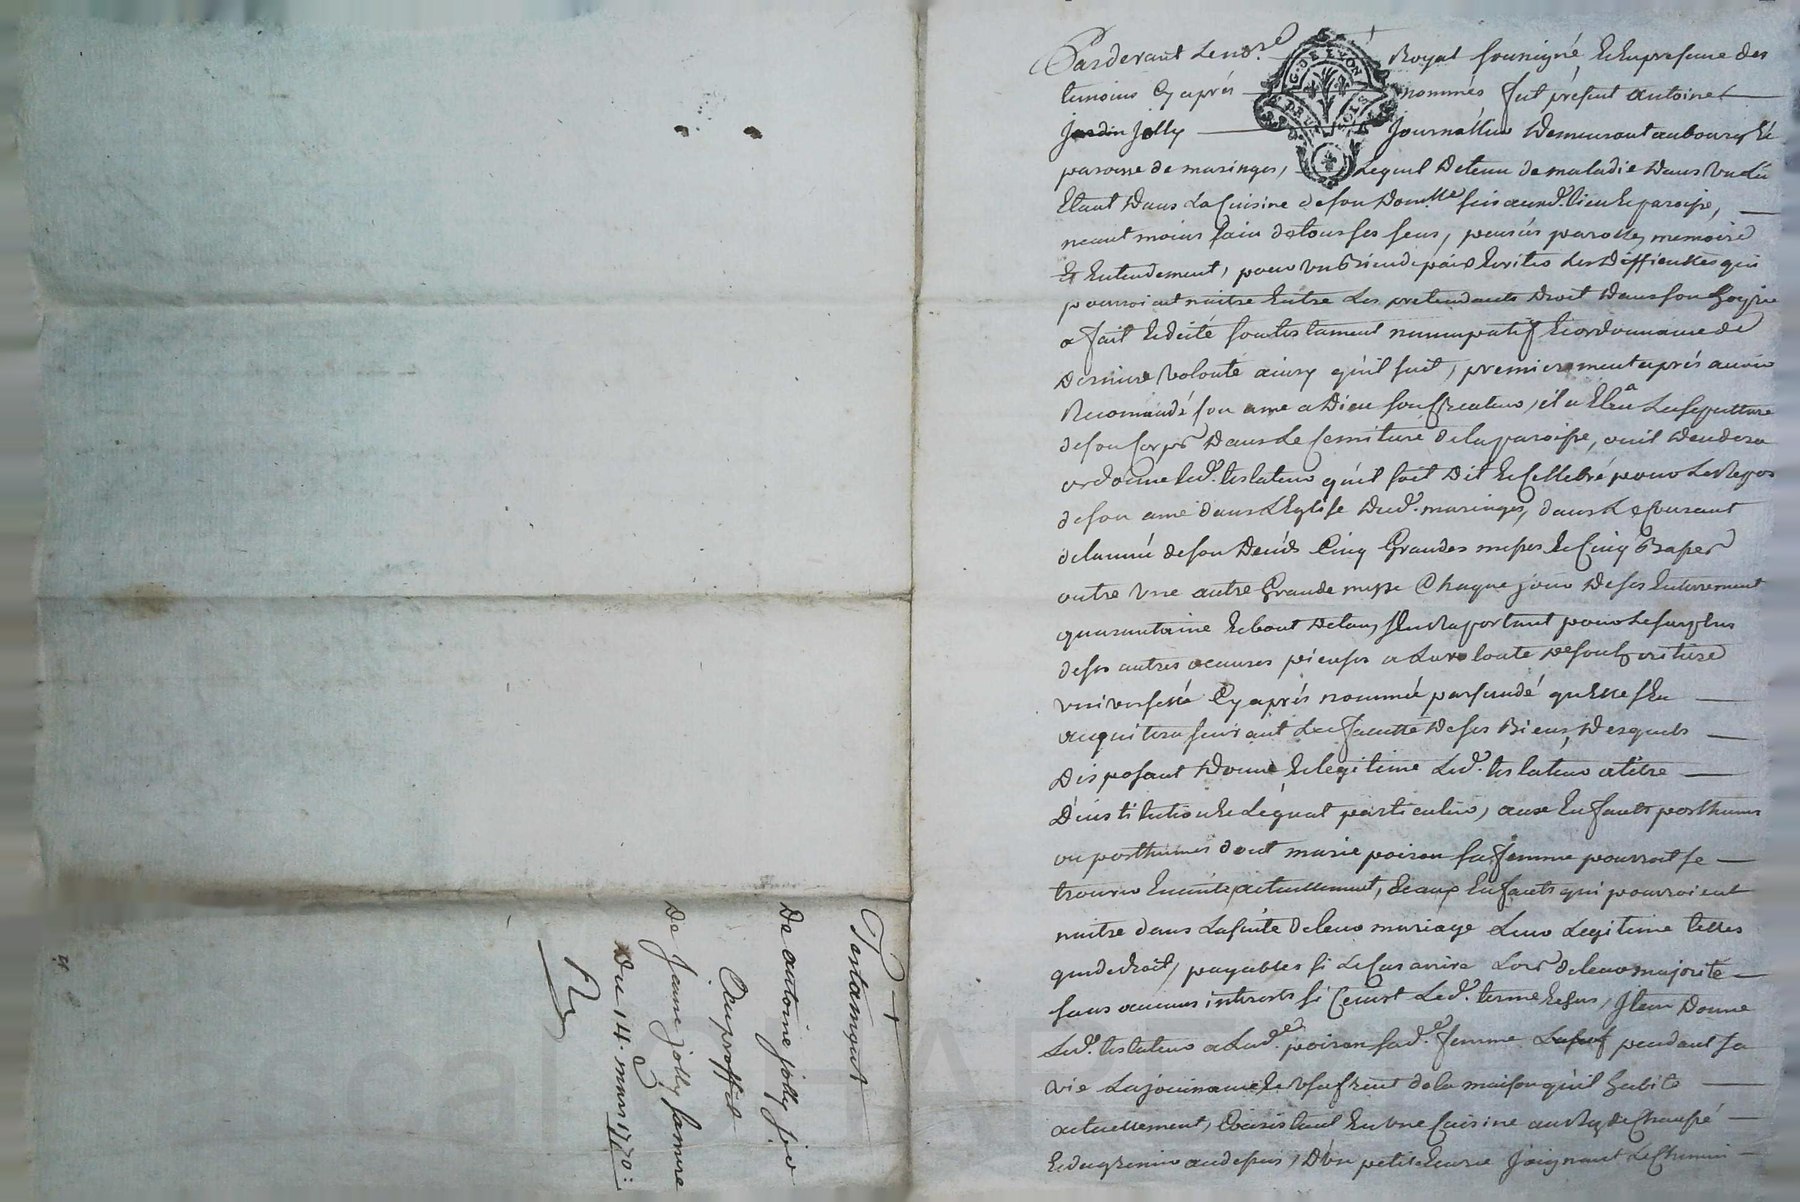 Pardevant Le no.re Royal soussigné, et en presence des
temoins Cy aprés nommés fut présent antoine
Jardin Jolly Journallier Demeurant au bourg et
paroisse de maringes, Lequel Detenu de maladie Dans un Lit
Etant Dans La Cuisine de son Domlle sis aud. lieu et paroisse,
neant moins sain de tous ses sens, pensées parolles, memoire
et Entendement, pour un Bien de paix Eviter Les Difficultes qui
pourroient naitre Entre Les pretendants Droit Dans son hoyrie
a fait et dicté son testament nuncupatif et ordonnance de
Derniere volonté ainsy qu'il suit, premierement aprés avoir
Recomandé son ame a Dieu son Createur, il a Eleu La sepulture
de son Corps Dans Le Cemitiere de la paroisse, ou il Decedera
ordonne led. testateur qu'il soit Dit et Cellebré pour Le Repos
de son ame dans L'Eglise Dud. maringes, dans Le Courant
de l'année de son Decéds Cinq Grandes messes et Cinq Basses
outre une autre Grande messe Chaque jour De ses Enterrement
quarantaine et bout De l'an, s'en Raportant pour Le surplus
de ses autres œuvres pieuses a La volonté De son heritiere
universelle Cy aprés nommée persuadé qu'elle s'En
acquitera suivant La faculté De ses Biens, Desquels
Disposant Donne et legitime Led. testateur a titre
D'institution et Légat particulier, aux Enfants posthumes
ou posthumes dont marie poizon sa femme pourroit se
trouver Enceinte actuellement, et aux Enfants qui pourroient
naitre dans La suite de leur mariage Leur Legitime telles
que de droit, payables si Le Cas arrive Lors de leur majorité
sans aucuns interests si Ce n'est Led. terme Echus, Item Donne
Led. testateur a Lad.e poizon sad.e femme pendant sa
vie La jouissance et usufruit de la maison qu'il habite
actuellement, Consistant En une Cuisine au Rez de Chaussé
et du grenier au dessus, D'un petit Ecurie Joignant Le Chemin
G. DE LYON
Testament
De antoine jolly j.er
Au proffit
De Jeanne jolly sa mere
Du 14. mars 1770: